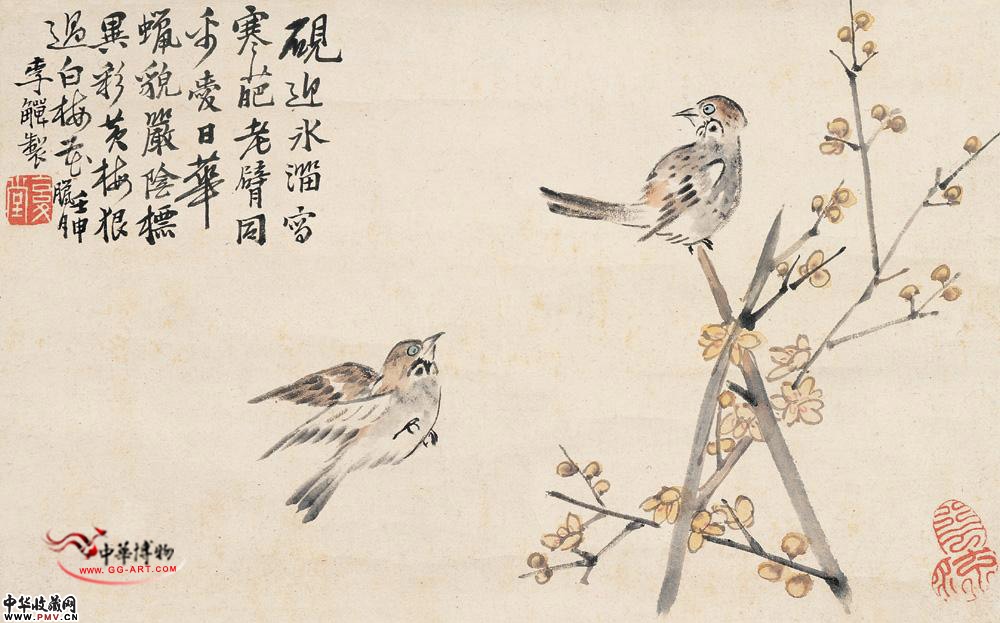 硯迎氷溜寫
寒葩老臂同
愛日華
蠟貌嚴陰標
異彩黃梅狠
過白梅花 壬申臘月
李觶製
中華博物
WWW.GG-ART.COM
中华收藏网
WWW.PMV.CN